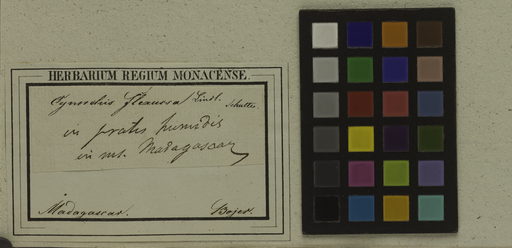 HERBARIUM REGIUM MONACENSE.
Cynorchis flexuosa Lindl.
in pratis humidis
in ins. Madagascar
Madagascar. Bojer.